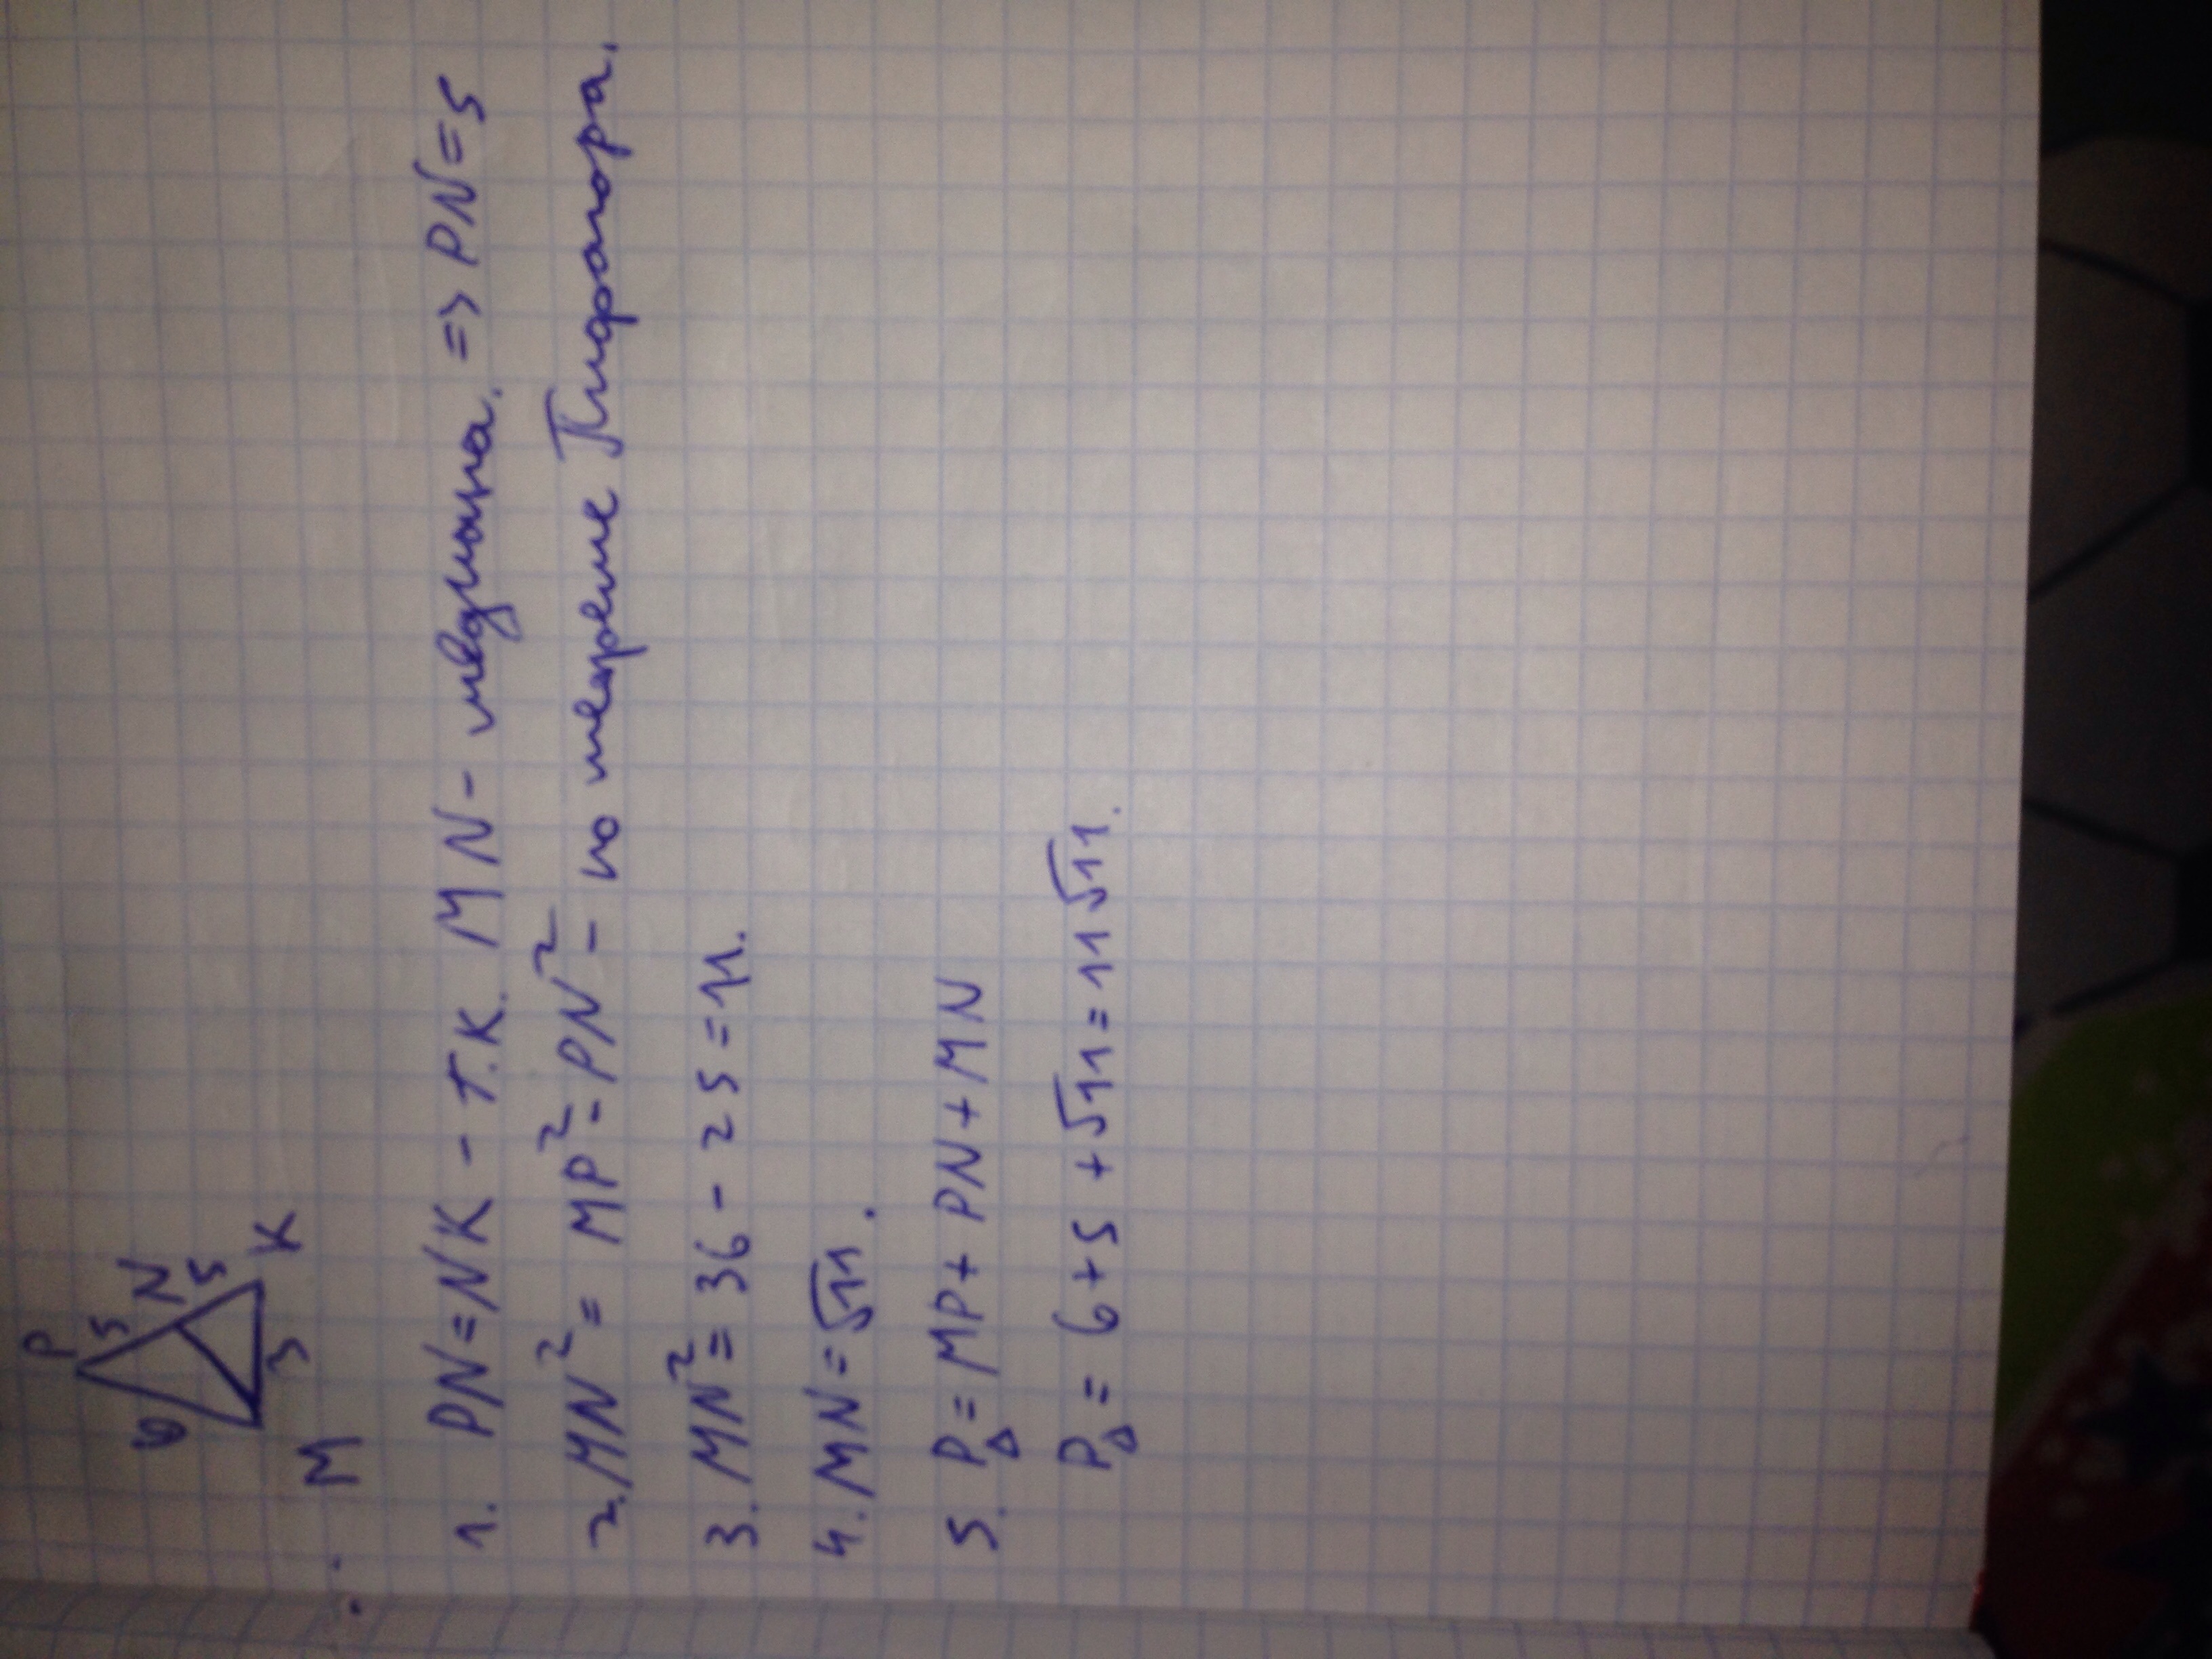 P
6 5 N
5
M 5 K
1. PN=NK - т.к. MN - медиана. => PN=5
2. MN² = MP² - PN² - по теореме Пифагора.
3. MN² = 36 - 25 = 11.
4. MN = √11.
5. P△ = MP + PN + MN
P△ = 6+5 + √11 = 11 √11.